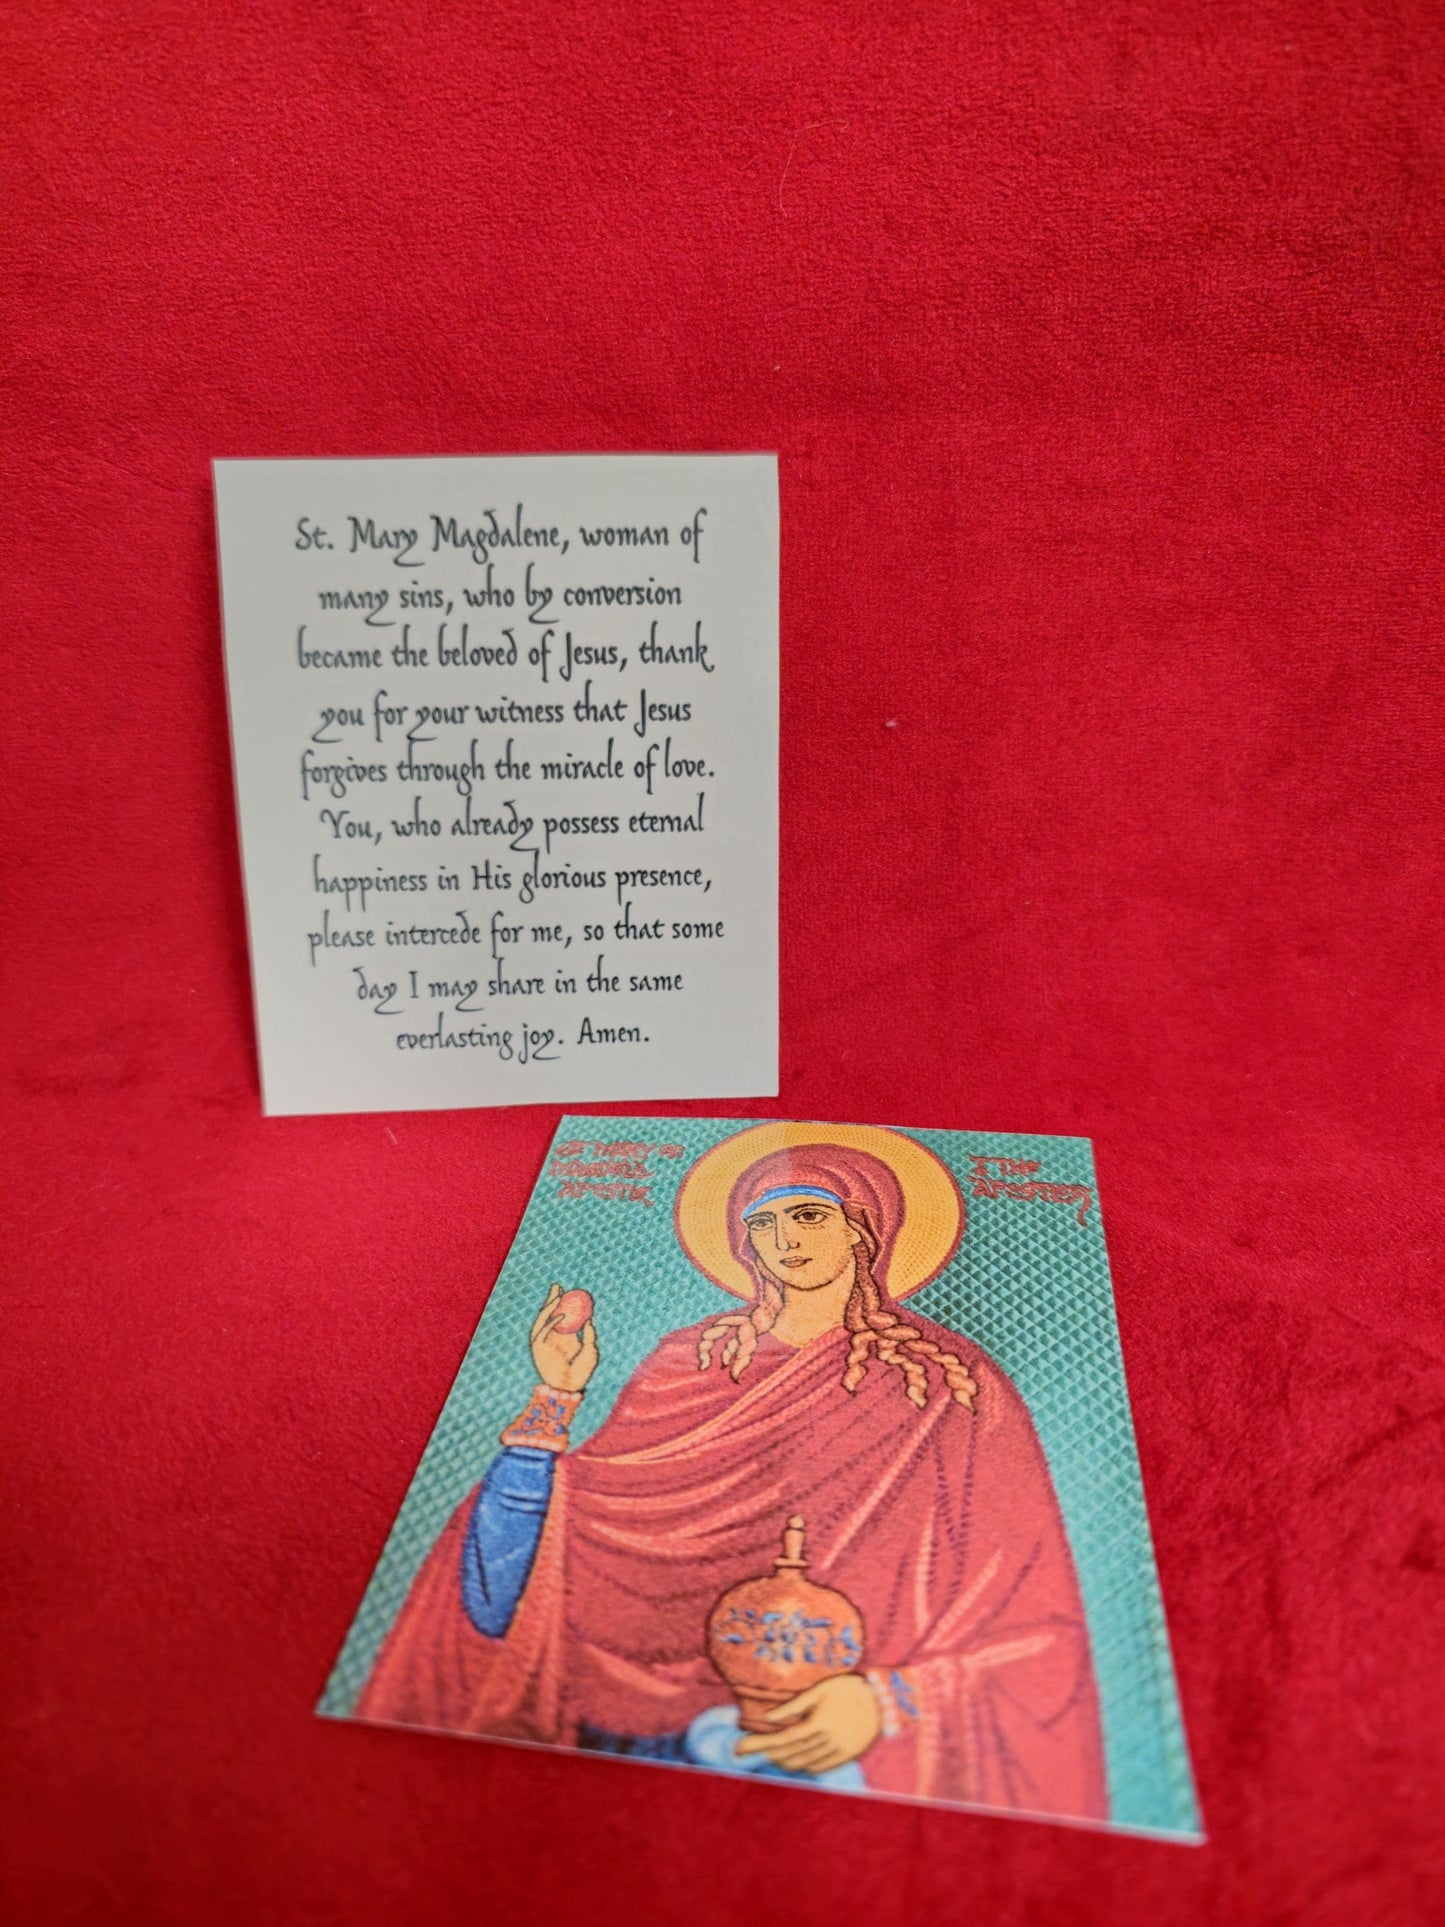 St. Mary Magdalene, woman of
many sins, who by conversion
became the beloved of Jesus, thank
you for your witness that Jesus
forgives through the miracle of love.
You, who already possess eternal
happiness in His glorious presence,
please intercede for me, so that some
day I may share in the same
everlasting joy. Amen.